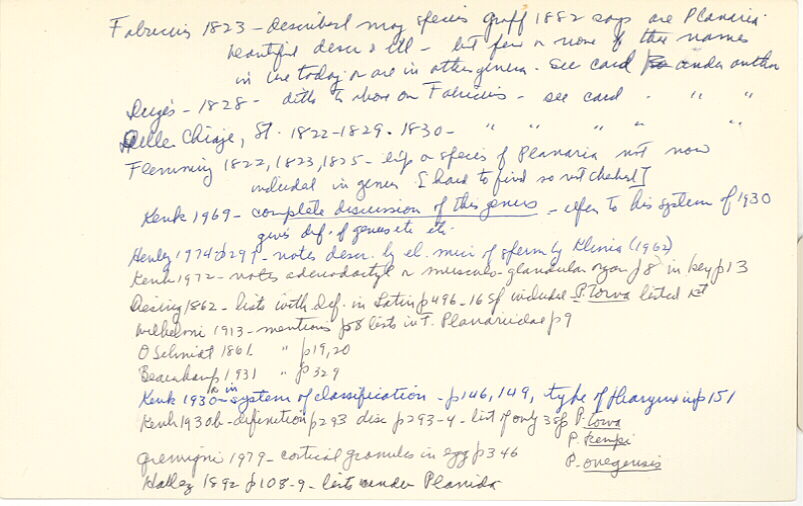 Fabricius 1823 - described many species Graff 1882 says are Planaria.
beautiful descr & ill - but few or none of these names
in use today or are in other genera. See card under author
Dugès - 1828 - ditto to above on Fabricius - see card - " "
Delle Chiaje, St. 1822-1829. 1830 - " " " " "
Flemming 1822, 1823, 1825 - species of Planaria not now
included in genus [hard to find so not checked]
Kenk 1969 - complete discussion of this genus - refer to his system of 1930
gives def. of genus etc etc.
Henley 1974 p297 - notes descr. by el. micr of sperm by Klima (1962)
Kenk 1972 - notes adenodactyl or musculo-glandular organ p8 in key p13
Diesing 1862 - lists with def. in Latin p496 - 16 sp included P. torva listed 1st
Wilhelmi 1913 - mentions p8 lists in F. Planariidae p9
O Schmidt 1861 " p19, 20
Beauchamp 1931 " p329
Kenk 1930a - in system of classification - p146, 149, type of pharynx in p151
Kenk 1930b - definition p293 disc p293-4 - list of only 3 sp P. torva
P. kempi
P. onegensis
Gremigni 1979 - cortical granules in egg p346
Hallez 1892 p108-9 - lists under Planida